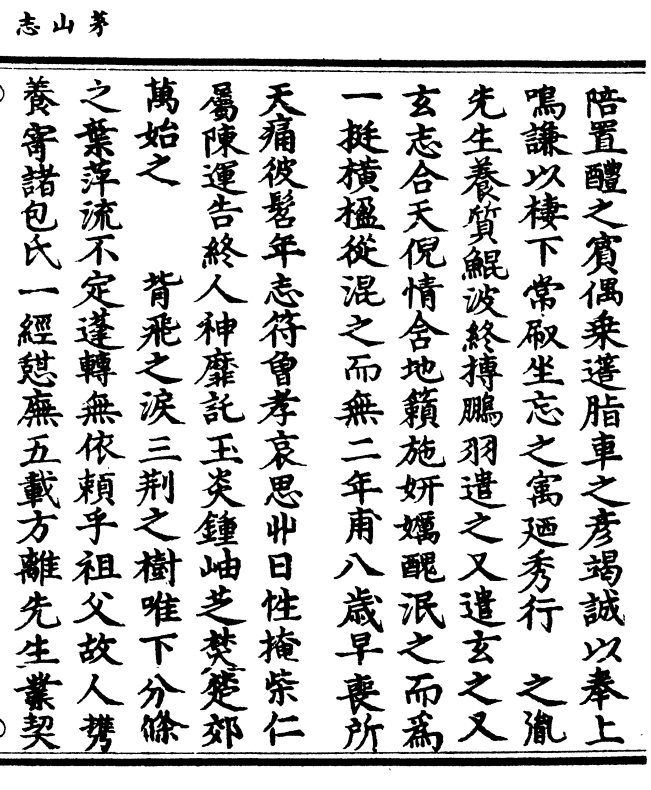 茅山志
陪置醴之賓偶乗蘧脂車之彦竭誠以奉上
鳴謙以棲下常㕞坐忘之寓廼秀行　之胤
先生養質鯤波終摶鵬羽遣之又遣玄之又
玄志合天倪情含地籟施妍孋醜泯之而爲
一挺横楹從混之而無二年甫八歳早喪所
天痛彼髫年志符曾孝哀思丱日性掩柴仁
屬陳運告終人神靡託玉炎鍾岫芝焚楚郊
萬始之　　背飛之淚三荆之樹唯下分條
之葉萍流不定蓬轉無依頼乎祖父故人攜
養寄諸包氏一經憇廡五載方離先生業契